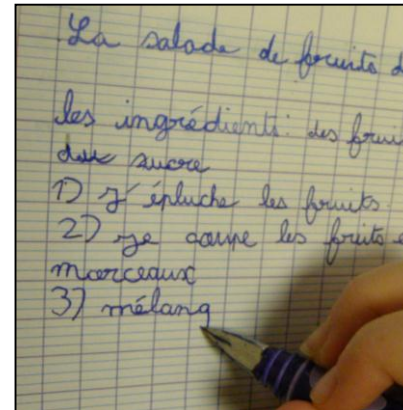 La salade de fruits d
les ingrédients: des frui
du sucre
1) J'épluche les fruits.
2) je coupe les fruits e
morceaux
3) mélang